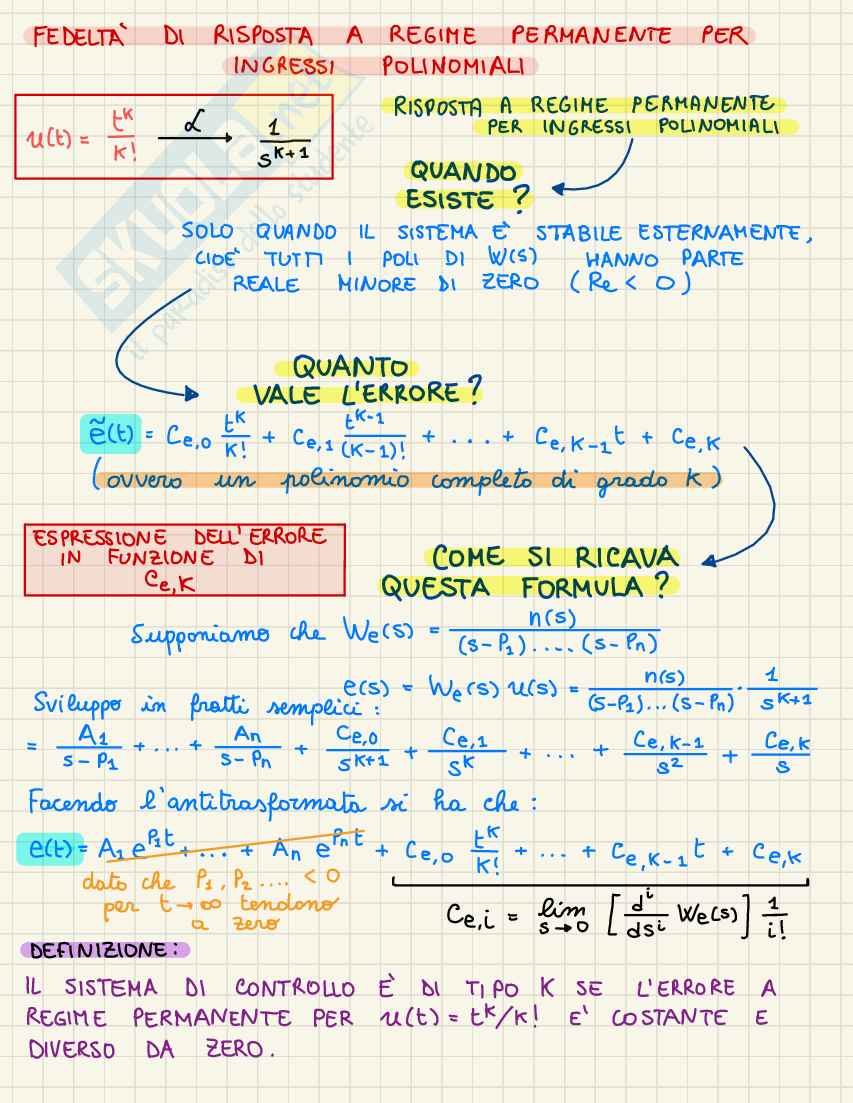 FEDELTÀ DI RISPOSTA A REGIME PERMANENTE PER
INGRESSI POLINOMIALI
u(t) = t^k/k! —ℒ→ 1/s^(k+1)
RISPOSTA A REGIME PERMANENTE
PER INGRESSI POLINOMIALI
QUANDO
ESISTE?
SOLO QUANDO IL SISTEMA È STABILE ESTERNAMENTE,
CIOÈ TUTTI I POLI DI W(s) HANNO PARTE
REALE MINORE DI ZERO (Re < 0)
SKUOLA.net
il paradiso dello studente
QUANTO
VALE L'ERRORE?
ẽ(t) = Ce,0 t^k/k! + Ce,1 t^(k-1)/(k-1)! + ... + Ce,k-1 t + Ce,k
(ovvero un polinomio completo di grado k)
ESPRESSIONE DELL'ERRORE
IN FUNZIONE DI
Ce,k
COME SI RICAVA
QUESTA FORMULA?
Supponiamo che We(s) = n(s)/((s-P1).....(s-Pn))
e(s) = We(s) u(s) = n(s)/((s-P1)...(s-Pn)) · 1/s^(k+1)
Sviluppo in fratti semplici:
= A1/(s-P1) + ... + An/(s-Pn) + Ce,0/s^(k+1) + Ce,1/s^k + ... + Ce,k-1/s² + Ce,k/s
Facendo l'antitrasformata si ha che:
e(t) = A1 e^(P1t) + ... + An e^(Pnt) + Ce,0 t^k/k! + ... + Ce,k-1 t + Ce,k
dato che P1, P2 .... < 0
per t→∞ tendono
a zero
Ce,i = lim s→0 [d^i/ds^i We(s)] 1/i!
DEFINIZIONE:
IL SISTEMA DI CONTROLLO È DI TIPO K SE L'ERRORE A
REGIME PERMANENTE PER u(t) = t^k/k! E' COSTANTE E
DIVERSO DA ZERO.